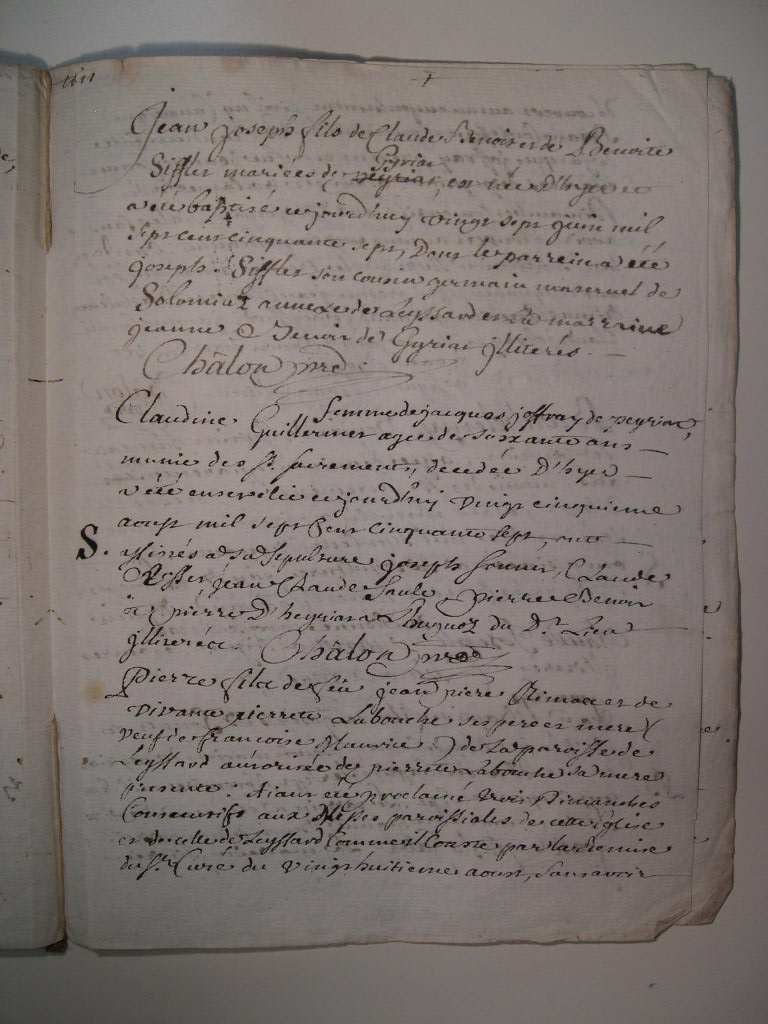 Jean joseph fils de Claude Benoit et de Benoite
Siffler mariées de Gyriat, est née D'hyer et
a été baptisé ce jourd'huy vingt sept juin mil
sept cent cinquante sept, Dont le parrein a été
joseph Siffler son cousin germain maternel de
Solomiaz annexe de Leyssard et la marraine
jeanne Benoit de Gyriat illiterés.
Châlon
femme de jacques joffray de peyriat,
Claudine Guillermet agée de soixante ans
munie des St. sacrements, decedée D'hyer
a été ensevelie ce jourd'huy vingt cinquieme
aoust mil sept cent cinquante sept, ont
S. assistés a sa sepulture joseph Claude
jean Claude pierre Benoit
pierre D'heyriat du Dt. Lieu
illiterés. Châlon
Pierre fils de feu jean piere et de
vivante pierrette Labouche ses pere et mere
veuf de francoise Maurice de la paroisse de
Leyssard autorisée de pierrette Labouche sa mere
presente: Aiant été proclamé trois Dimanches
Consecutifs aux Messes paroissiales de cette Eglise
et de celle de Leyssard Comme il Conste par la remise
du Sr. Curé du vingt huitieme aoust, sans avoir